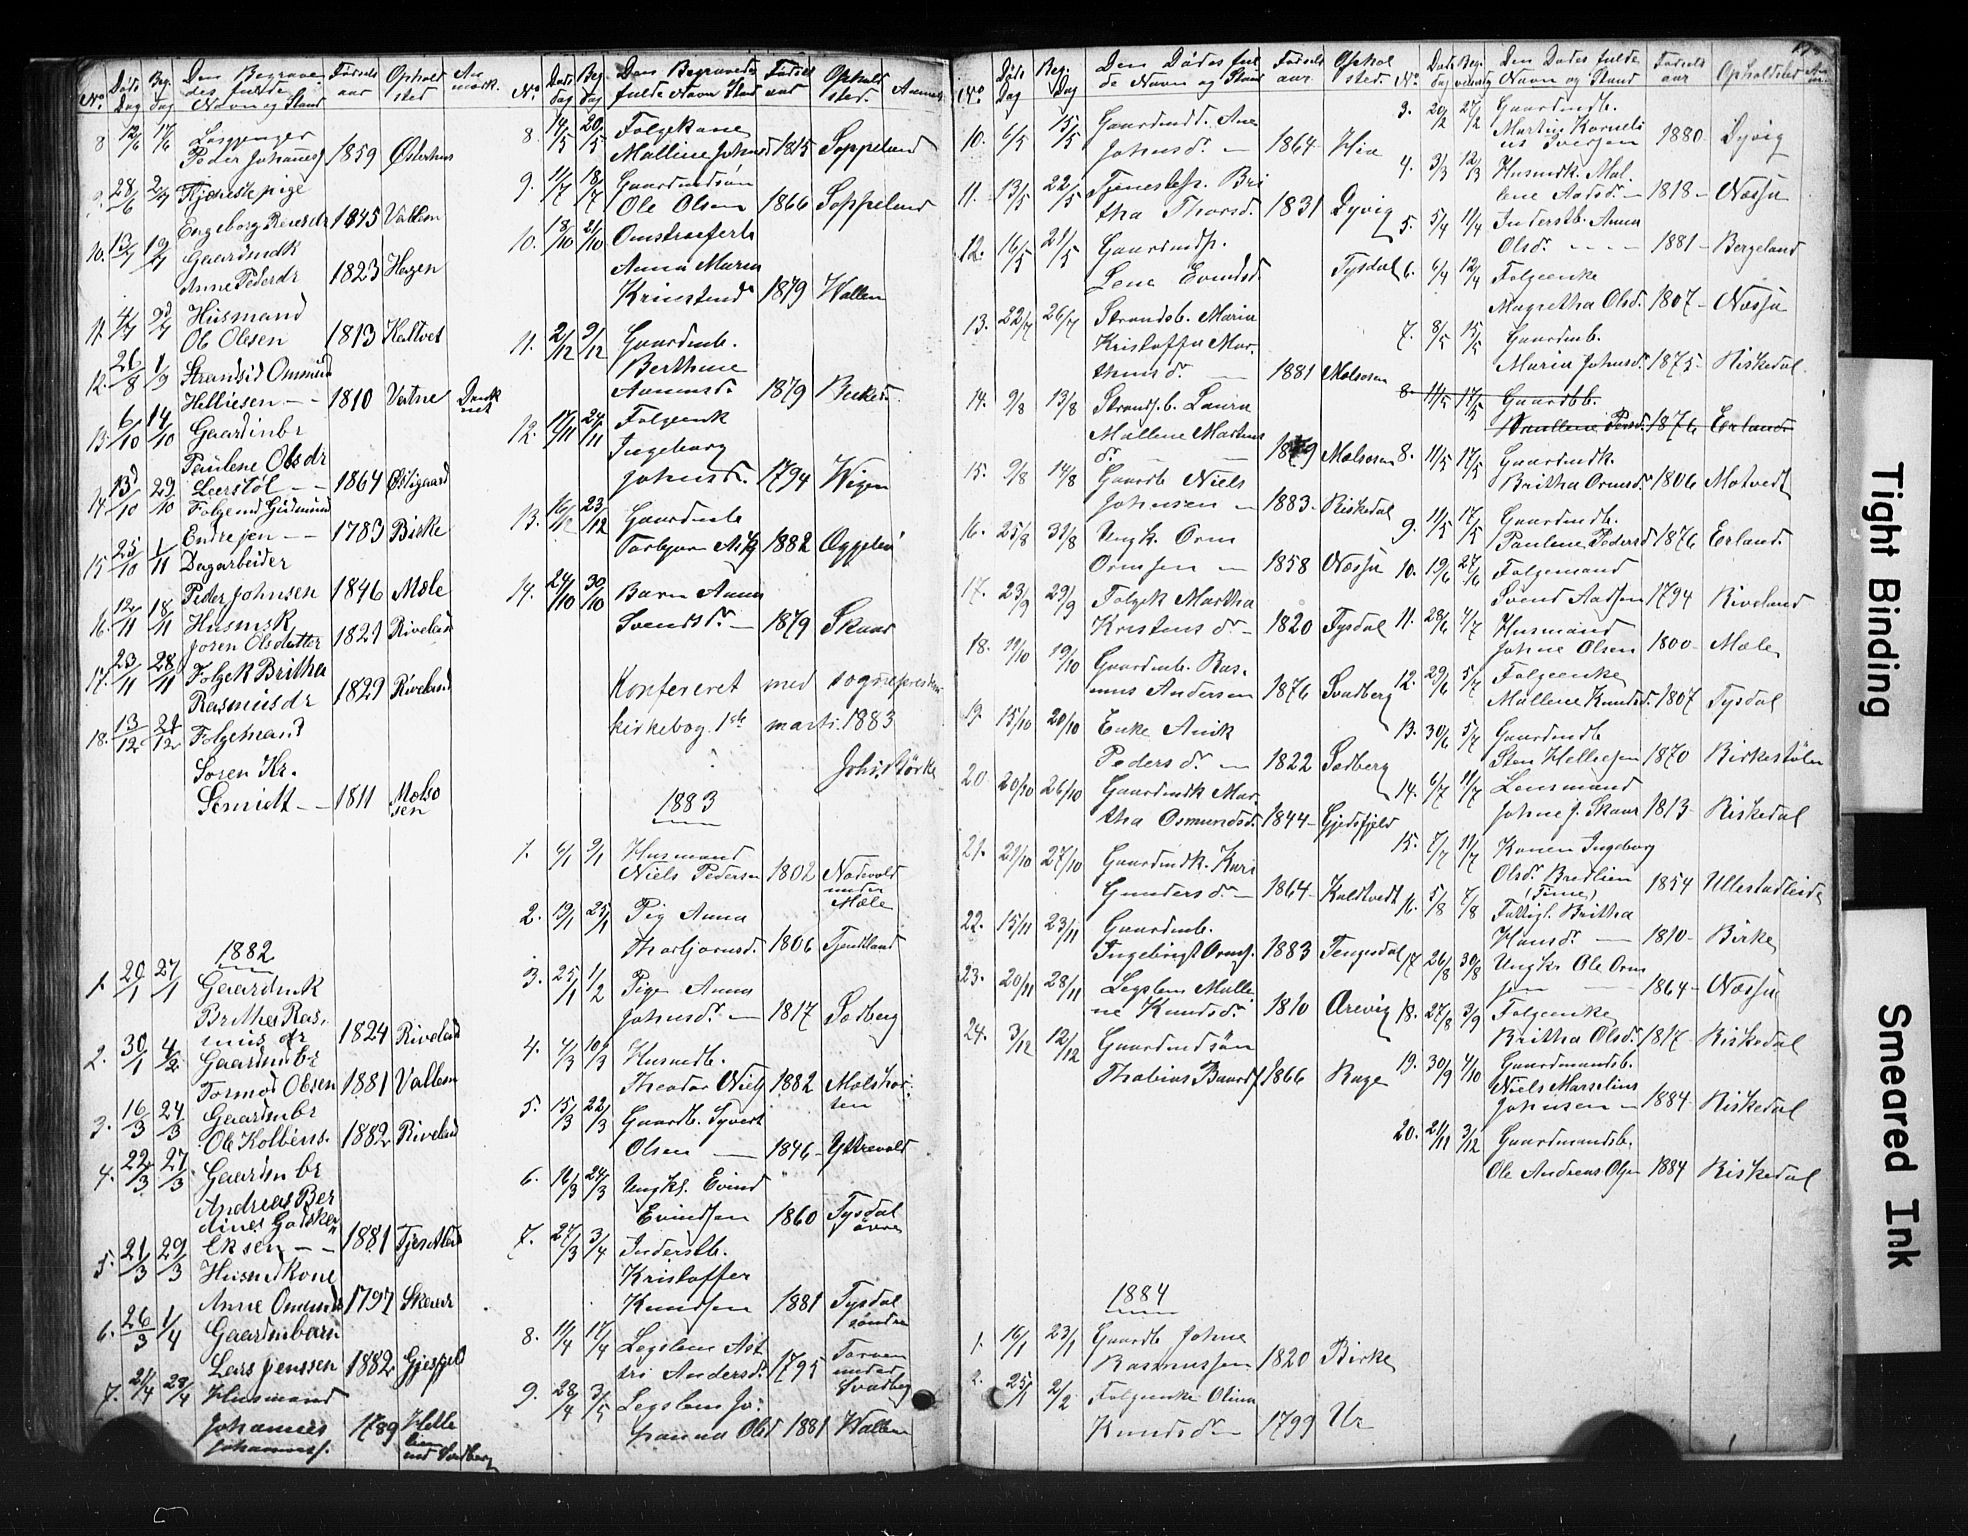 No. Døds Dag Beg. dag Den Begravedes fulde Navn og Stand Fødsels aar Ophold sted An mærk.
8 12/6 17/6
Peder Johannes 1859 Østerhus
28/6 2/7 Tjenestepige
Engeborg Reiersdr 1845 Vallem
10. 13/7 19/7 Gaardmdk
Anne Pedersdr 1823 Hagen
11. 4/7 Husmand
Ole Olesen 1813 Kaltvet
12. 26/8 1/9 Strandsid Ommund
Helliesen – – 1810 Vatne
13. 6/10 14/10 Gaardmbr
Paulene Olsdr
Leerstøl – – 1864 Østigaard
14. 13/10 29/10 Folgemd Gudmund
Endresen – – 1783 Birke
15 25/10 1/11 Dagarbeider
Peder Johnsen 1846 Mæle
16. 12/11 18/11 Husmsk
Joren Olsdatter 1821 Riveland
17. 23/11 28/11 Folgek Britha
Rasmusdr 1829 Riveland
18. 13/12 21/12 Folgemand
Soren Kr.
Schmidt – 1811 Mælsosen
1882
1. 20/1 27/1 Gaardmk
Brithe Rasmusdr 1824 Riveland
2. 30/1 4/2 Gaardmbr
Tormod Olsen 1881 Vallem
3. 16/3 24/3 Gaardmbr
Ole Kolbens. 1882 Riveland
4. 22/3 27/3 Gaardmbr
Andreas Ber
dines Godsker
Eksen – – 1881
5. 21/3 29/3 Husmdkone
Anne Ommunds 1797
6. 26/3 1/4 Gaardmbarn
Lars Jenssen 1882 Gjesfjeld
7. 21/4 28/4 Husmand
Johannes
Johanness. 1789
und Svadberg
No. Døds dag Beg dag Den Begravedes fulde Navn Stand Fødsels aar Opholds sted. Anmærk
8. 14/5 20/5 Folgekone
Mallene Johnsd 1815 Soppeland
9. 11/7 18/7 Gaardmdsøn
Ole Olsen 1866 Soppeland
10. 18/10 21/10 Omstreiferb
Anna Maria
Kristensd 1879 Wallen
11. 2/12 9/12 Gaardmb.
Berthine
Aamunsd. 1879
12. 17/11 24/11 Folgeenk
Ingeborg
Johnsd. 1794 Wigen
13. 16/12 23/12 Gaardmb
Torbjørn 1882
14. 24/10 30/10 Barn Anna
Svendsd. – 1879 Skaar
Konfereret med sogneprestens
kirkebog 1ste marts 1883
1883
1. 4/1 9/1 Husmand
Niels Pedersen 1802 Nodevold under Mæle
2. 19/1 25/1 Pig Anna
Thorbjornsd. 1806 Tjentland
3. 25/1 1/2 Pige Anna
Johnsd. – 1817 Sadberg
4. 4/3 10/3 Husmdb.
Theodor Niels 1882
5. 15/3 22/3 Gaardb. Syvert
Olsen – 1846 Ytrevold
6. 16/3 24/3 Ungk. Eivind
Evindsen 1860 Tysdal øvre
7. 27/3 3/4 Inderstb.
Kristoffer
Knudsen 1881 Tysdal søndre
8. 11/4 17/4 Legslem Ast
tri Andersd. 1795 Torven under Svadberg
9. 28/4 3/5 Legslem Jo:
hanna Olsd 1881 Wallen
No. Døds Dag Beg. Dag Den Dødes fulde Navn og Stand Fødsels aar. Ophol sted.
10. 6/5 15/5 Gaardmdd. Ane
Johnsd. – 1864 Hia
11. 13/5 22/5 Tjenestep. Bri
tha Thorsd. 1831 Dyvig
12. 16/5 21/5 Gaardmdp.
Lene Evindsd. Tysdal
13. 22/7 26/7 Strandsb. Maria
Kristoffa Mar.
thinsd. – 1881 Mælsosen
14. 9/8 13/8 Strands.b. Laura
Mallene Martins
d. – – 1879 Mælsosen
15. 9/8 14/8 Gaardb Niels
Johnsen – 1883 Riskedal
16. 25/8 31/8 Ungk. Orm
Ormsen – 1858 Næssa
17. 23/9 29/9 Folgek Martha
Kristensd. – 1820 Tysdal
18. 14/10 19/10 Gaardmb. Ras
mus Andersen 1876 Svadberg
19. 15/10 20/10 Enke Anik
Pedersd. – 1822 Sadberg
20 20/10 26/10 Gaardmdk Mar
tha Osmundsd. 1844 – Gjedsfjeld
21. 21/10 27/10 Gaardmdk. Kari
Gundersd. – 1864 – Kaldtvedt
22. 15/11 23/11 Gaardmb.
Ingebrigt Orms. 1883 Tengesdal
23. 20/11 28/11 Legslem Malle
ne Knudsd. 1810 Arevig
24. 3/12 12/12 Gaardmdsøn
Thobias Baards 1866 Rage
1884
1. 16/1 23/1 Gaardb Johne
Rasmussen 1820 Birke
2. 25/1 2/2 Folgeenke Olina
Knudsd. – 1799 Ur
No. Døds dag Beg. Den Dødes fulde Navn og Stand Fødsels aar Opholdsted
3. 20/2 27/2 Gaardmdb.
Martin Korneli
us Iversen 1880 Dyvig
4. 3/3 12/3 Husmdk. Mal
lene Aadsd. – 1818 – Næssa
5. 5/4 11/4 Inderstb. Anna
Olsd. – – – 1881 – Bergeland
6. 6/4 12/4 Folgeenke
Magretha Olsd. 1807 – Næssa
7. 8/5 15/5 Gaardmb.
Maria Johnsd. 1875 – Riskedal
8. 11/5 17/5 Gaardbb.
Paulene Pesd. 1876 Erland
8. 11/5 17/5 Gaardmdk.
Britha Ormsd. 1806 Motvedt
9. 11/5 17/5 Gaardmdb.
Paulene Pedersd 1876 Erland
10. 19/6 27/6 Folgemand
Svend Aadsen 1794 Riveland
11. 28/6 4/7 Husmand
Johne Olsen 1800 – Mæle
12. 29/6 5/7 Folgeenke
Mallene Knudsd. 1807 Tysdal
13. 30/6 5/7 Gaardmdb
Sten Helliesen 1870 Birkestølen
14. 6/7 11/7 Lensmand
Johne J. Skaar 1813 – Riskedal
15. 7/7 11/7 Konen Ingeborg
Olsd. Bredlien
(Time) 1854 Ullestadleide
16. 5/8 7/8 Fattigl. Britha
Hansd. – 1810 – Birke
17 26/8 30/8 Ungk. Ole Orm
sen – 1864 – Næssa
18. 27/8 3/9 Folgeenke
Britha Olsd. 1817 – Riskedal
19. 30/9 4/10 Gaardmandsb.
Niels Marselius
Johnsen – 1884 – Riskedal
20. 21/11 3/12 Gaardmandsb.
Ole Andreas Olsen 1884 Riskedal
Tight Binding
Smeared Ink